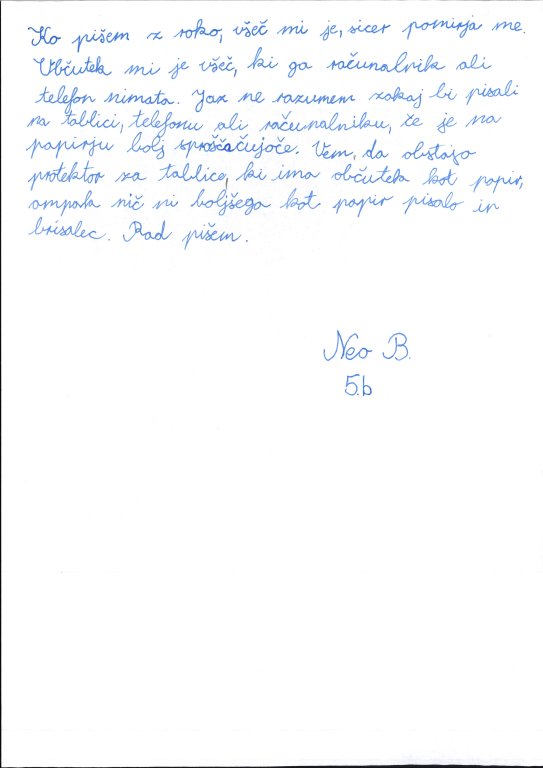 Ko pišem z roko, všeč mi je, sicer pomirja me.
Občutek mi je všeč, ki ga računalnik ali
telefon nimata. Jaz ne razumem zakaj bi pisali
na tablici, telefonu ali računalniku, če je na
papirju bolj sproščačujoče. Vem, da obstajo
protektor za tablice, ki ima občutek kot papir,
ampak nič ni boljšega kot papir pisalo in
brisalec. Rad pišem.
Neo B.
5.b